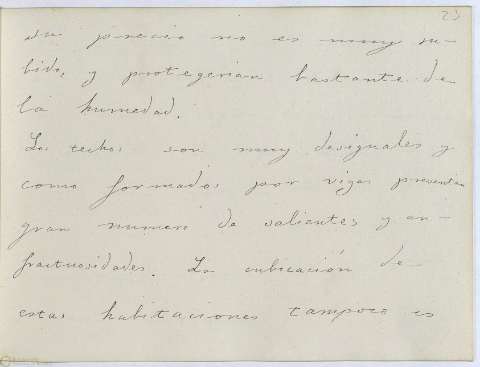 23
su precio no es muy su-
bido, y protegerian bastante de
la humedad.
Los techos son muy desiguales y
como formados por vigas presentan
gran numero de salientes y an-
fractuosidades. La cubicación de
estas habitaciones tampoco es